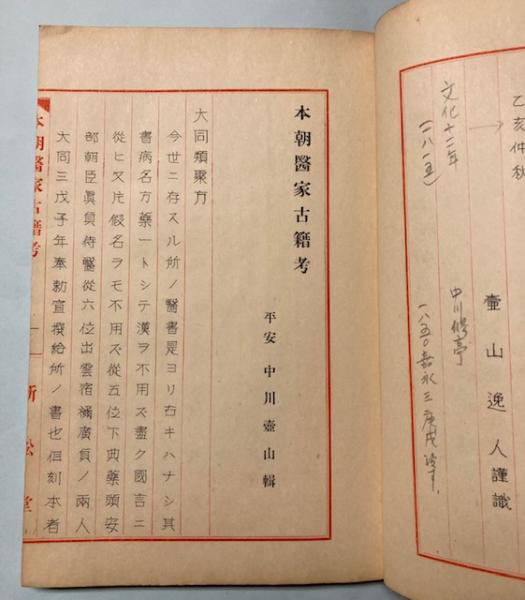 乙亥仲秋
文化十二年
(一八一五)
壷山逸人謹識
中川修亭
一八五〇嘉永三庚戌
本朝醫家古籍考
平安 中川壺山輯
大同類聚方
今世ニ存スル所ノ醫書是ヨリ古キハナシ其
書病名方藥一トシテ漢ヲ不用ズ盡ク國言ニ
從ヒ又片假名ヲモ不用ズ從五位下典藥頭安
部朝臣眞貞侍醫從六位出雲宿禰廣貞ノ兩人
大同三戊子年奉勅宣撰給所ノ書也但刻本者
本朝醫家古籍考
一
所松堂